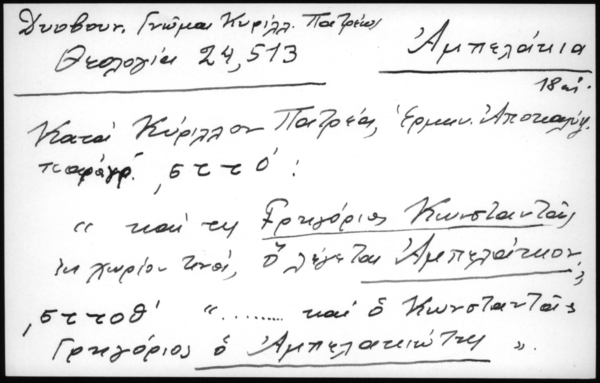 Δυοβουν. Γνῶμαι Κυρίλλ. Πατρέως
Θεολογία 24,513
Ἀμπελάκια
18 αἰ.
Κατά Κύριλλον Πατρέα, Ἑρμην. Ἀποκαλύψ.
παράγρ.
“ καί τις Γρηγόριος Κωνσταντᾶς
ἐκ χωρίου τινός, ὅ λέγεται Ἀμπελάκιον,
“ ......... καί ὁ Κωνσταντᾶς
Γρηγόριος ὁ Ἀμπελακιώτης ”.